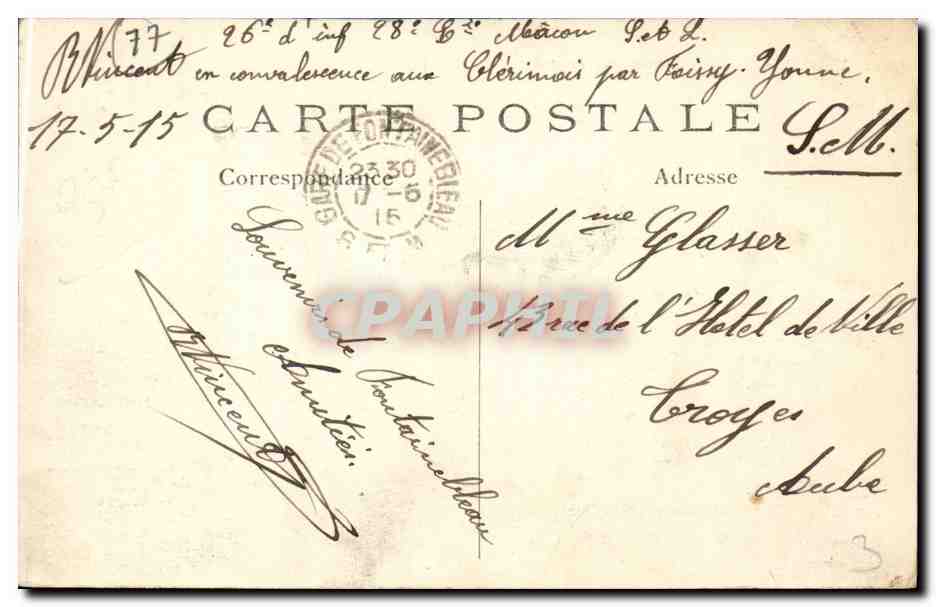 77
26e d'inf 28e Cie Mâcon S.et L.
RVincent en convalescence aux Clérimois par Foissy. Yonne.
17-5-15 CARTE POSTALE
S.M.
GARE DE FONTAINEBLEAU
23 30
17 -5
15
Correspondance Adresse
Souvenirs de Fontainebleau
Amitiés.
RVincent
Mme Glasser
43 rue de l'Hotel de Ville
Troyes
Aube
3
CPAPHIL